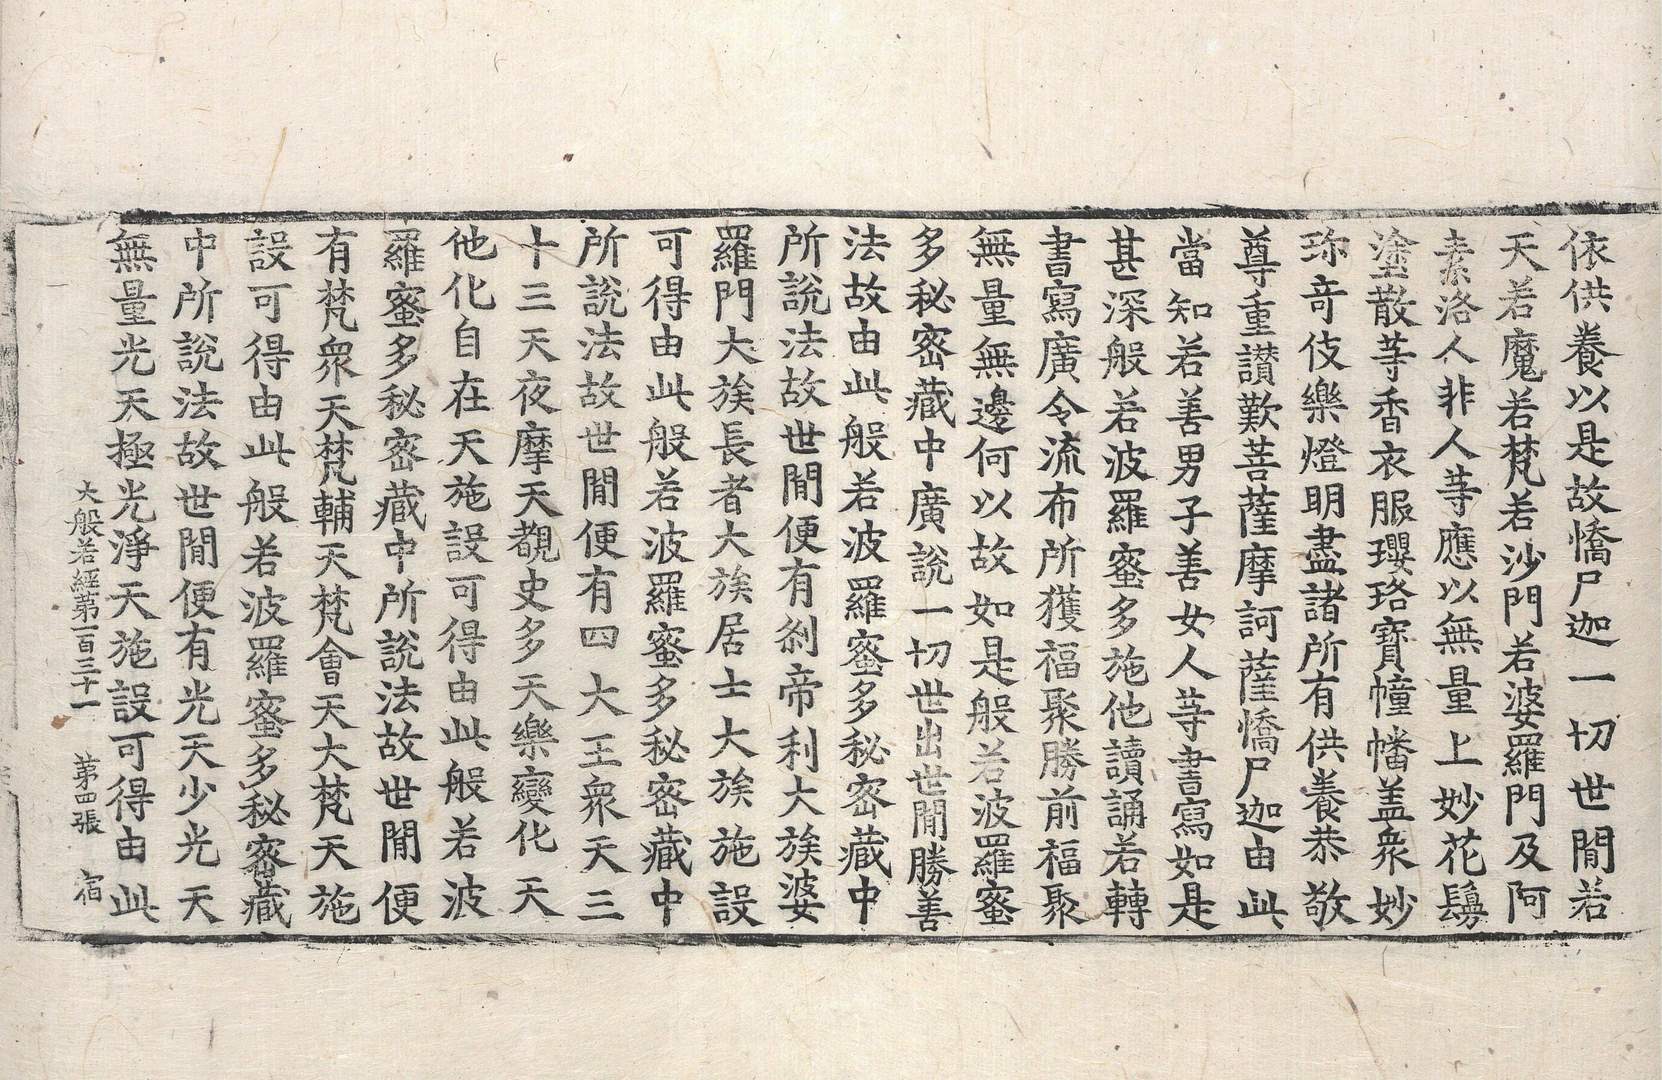 依供養以是故憍尸迦一切世閒若
天若魔若梵若沙門若婆羅門及阿
素洛人非人等應以無量上妙花鬘
塗散等香衣服瓔珞寶幢幡盖衆妙
珎竒伎樂燈明盡諸所有供養恭敬
尊重讃歎菩薩摩訶薩憍尸迦由此
當知若善男子善女人等書寫如是
甚深般若波羅蜜多施他讀誦若轉
書寫廣令流布所獲福聚勝前福聚
無量無邊何以故如是般若波羅蜜
多秘密藏中廣說一切世出世閒勝善
法故由此般若波羅蜜多秘密藏中
所說法故世閒便有刹帝利大族婆
羅門大族長者大族居士大族施設
可得由此般若波羅蜜多秘密藏中
所說法故世閒便有四大王衆天三
十三天夜摩天覩史多天樂變化天
他化自在天施設可得由此般若波
羅蜜多秘密藏中所說法故世閒便
有梵衆天梵輔天梵會天大梵天施
設可得由此般若波羅蜜多秘密藏
中所說法故世閒便有光天少光天
無量光天極光淨天施設可得由此
大般若經第一百三十一 第四張 宿